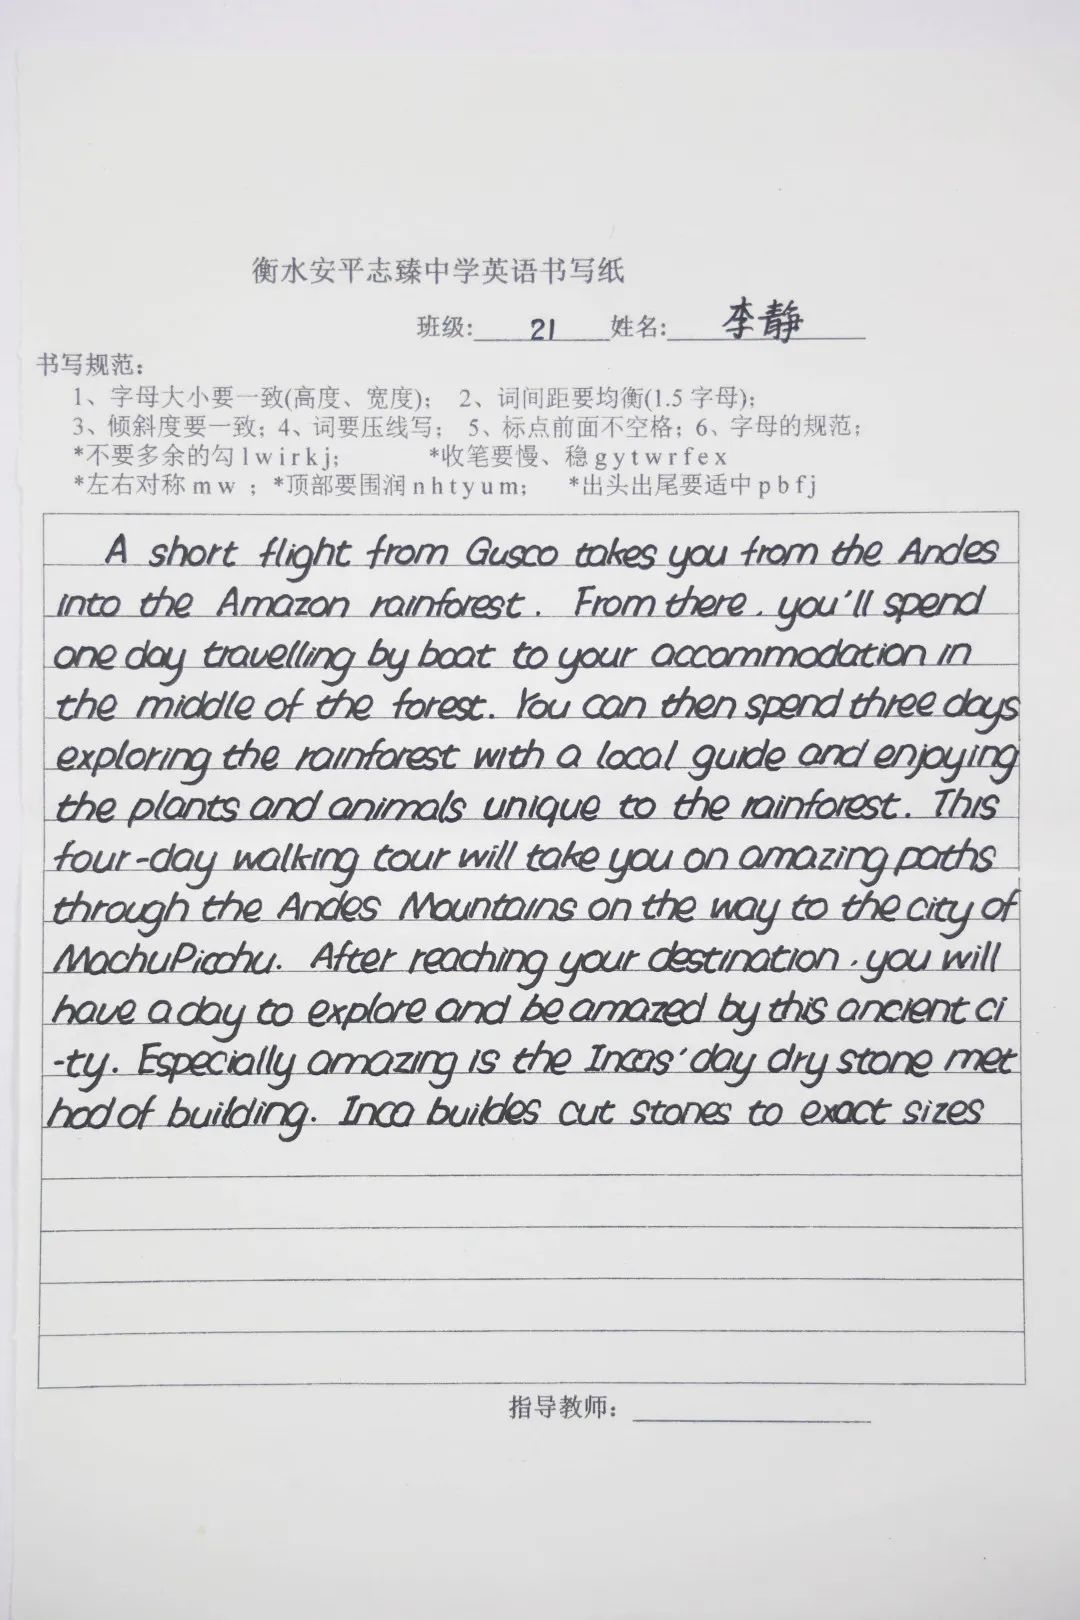 衡水安平志臻中学英语书写纸
班级: 21 姓名: 李静
书写规范:
1、字母大小要一致(高度、宽度); 2、词间距要均衡(1.5 字母);
3、倾斜度要一致; 4、词要压线写; 5、标点前面不空格; 6、字母的规范;
*不要多余的勾 l w i r k j; *收笔要慢、稳 g y t w r f e x
*左右对称 m w ; *顶部要围润 n h t y u m; *出头出尾要适中 p b f j
A short flight from Gusco takes you from the Andes
into the Amazon rainforest. From there, you'll spend
one day travelling by boat to your accommodation in
the middle of the forest. You can then spend three days
exploring the rainforest with a local guide and enjoying
the plants and animals unique to the rainforest. This
four-day walking tour will take you on amazing paths
through the Andes Mountains on the way to the city of
Machu Picchu. After reaching your destination, you will
have a day to explore and be amazed by this ancient ci
-ty. Especially amazing is the Incas' day dry stone met
hod of building. Inca buildes cut stones to exact sizes
指导教师: